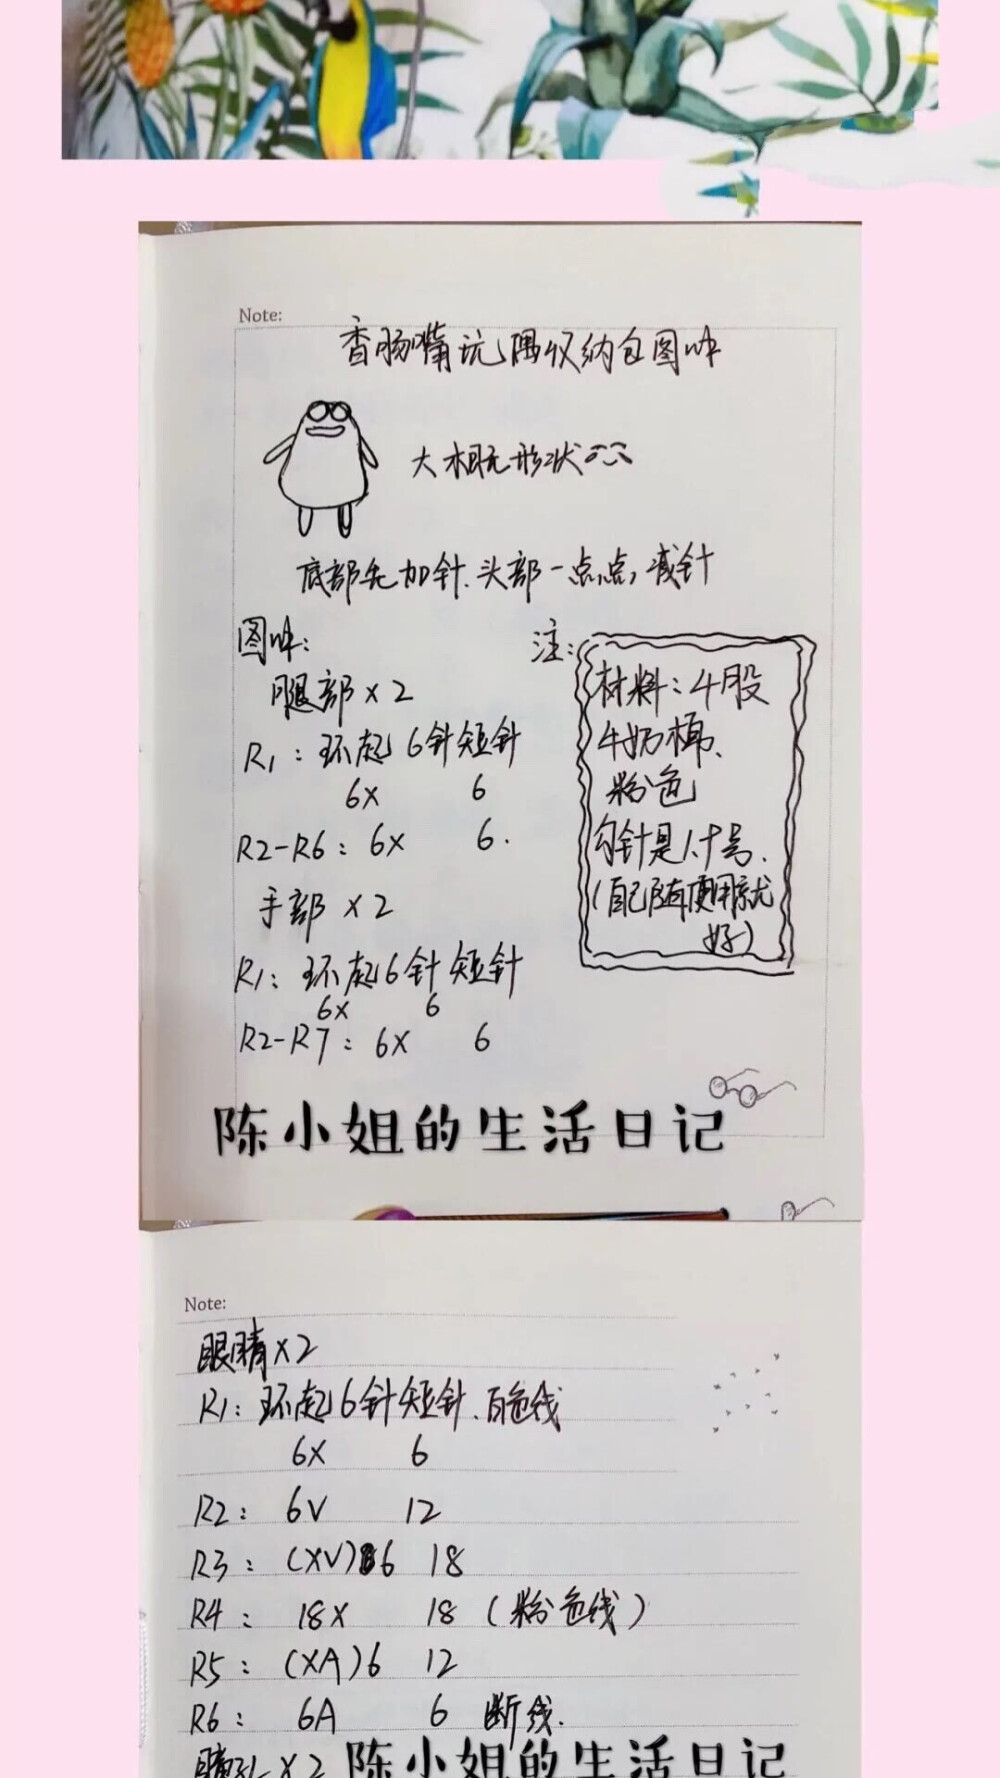 Note:
香肠嘴玩偶收纳包图叶
大概形状
底部先加针.头部一点点减针
图叶:
腿部×2
R1:环起6针短针
6X 6
R2-R6:6X 6.
手部×2
R1:环起6针短针
6X 6
R2-R7:6X 6
注:
材料:4股
牛奶棉、
粉色
勾针是1.5号.
(自己随便用就
好)
陈小姐的生活日记
Note:
眼睛×2
R1:环起6针短针.白色线
6X 6
R2: 6V 12
R3: (XV)6 18
R4: 18X 18 (粉色线)
R5: (XA)6 12
R6: 6A 6 断线.
×2
陈小姐的生活日记